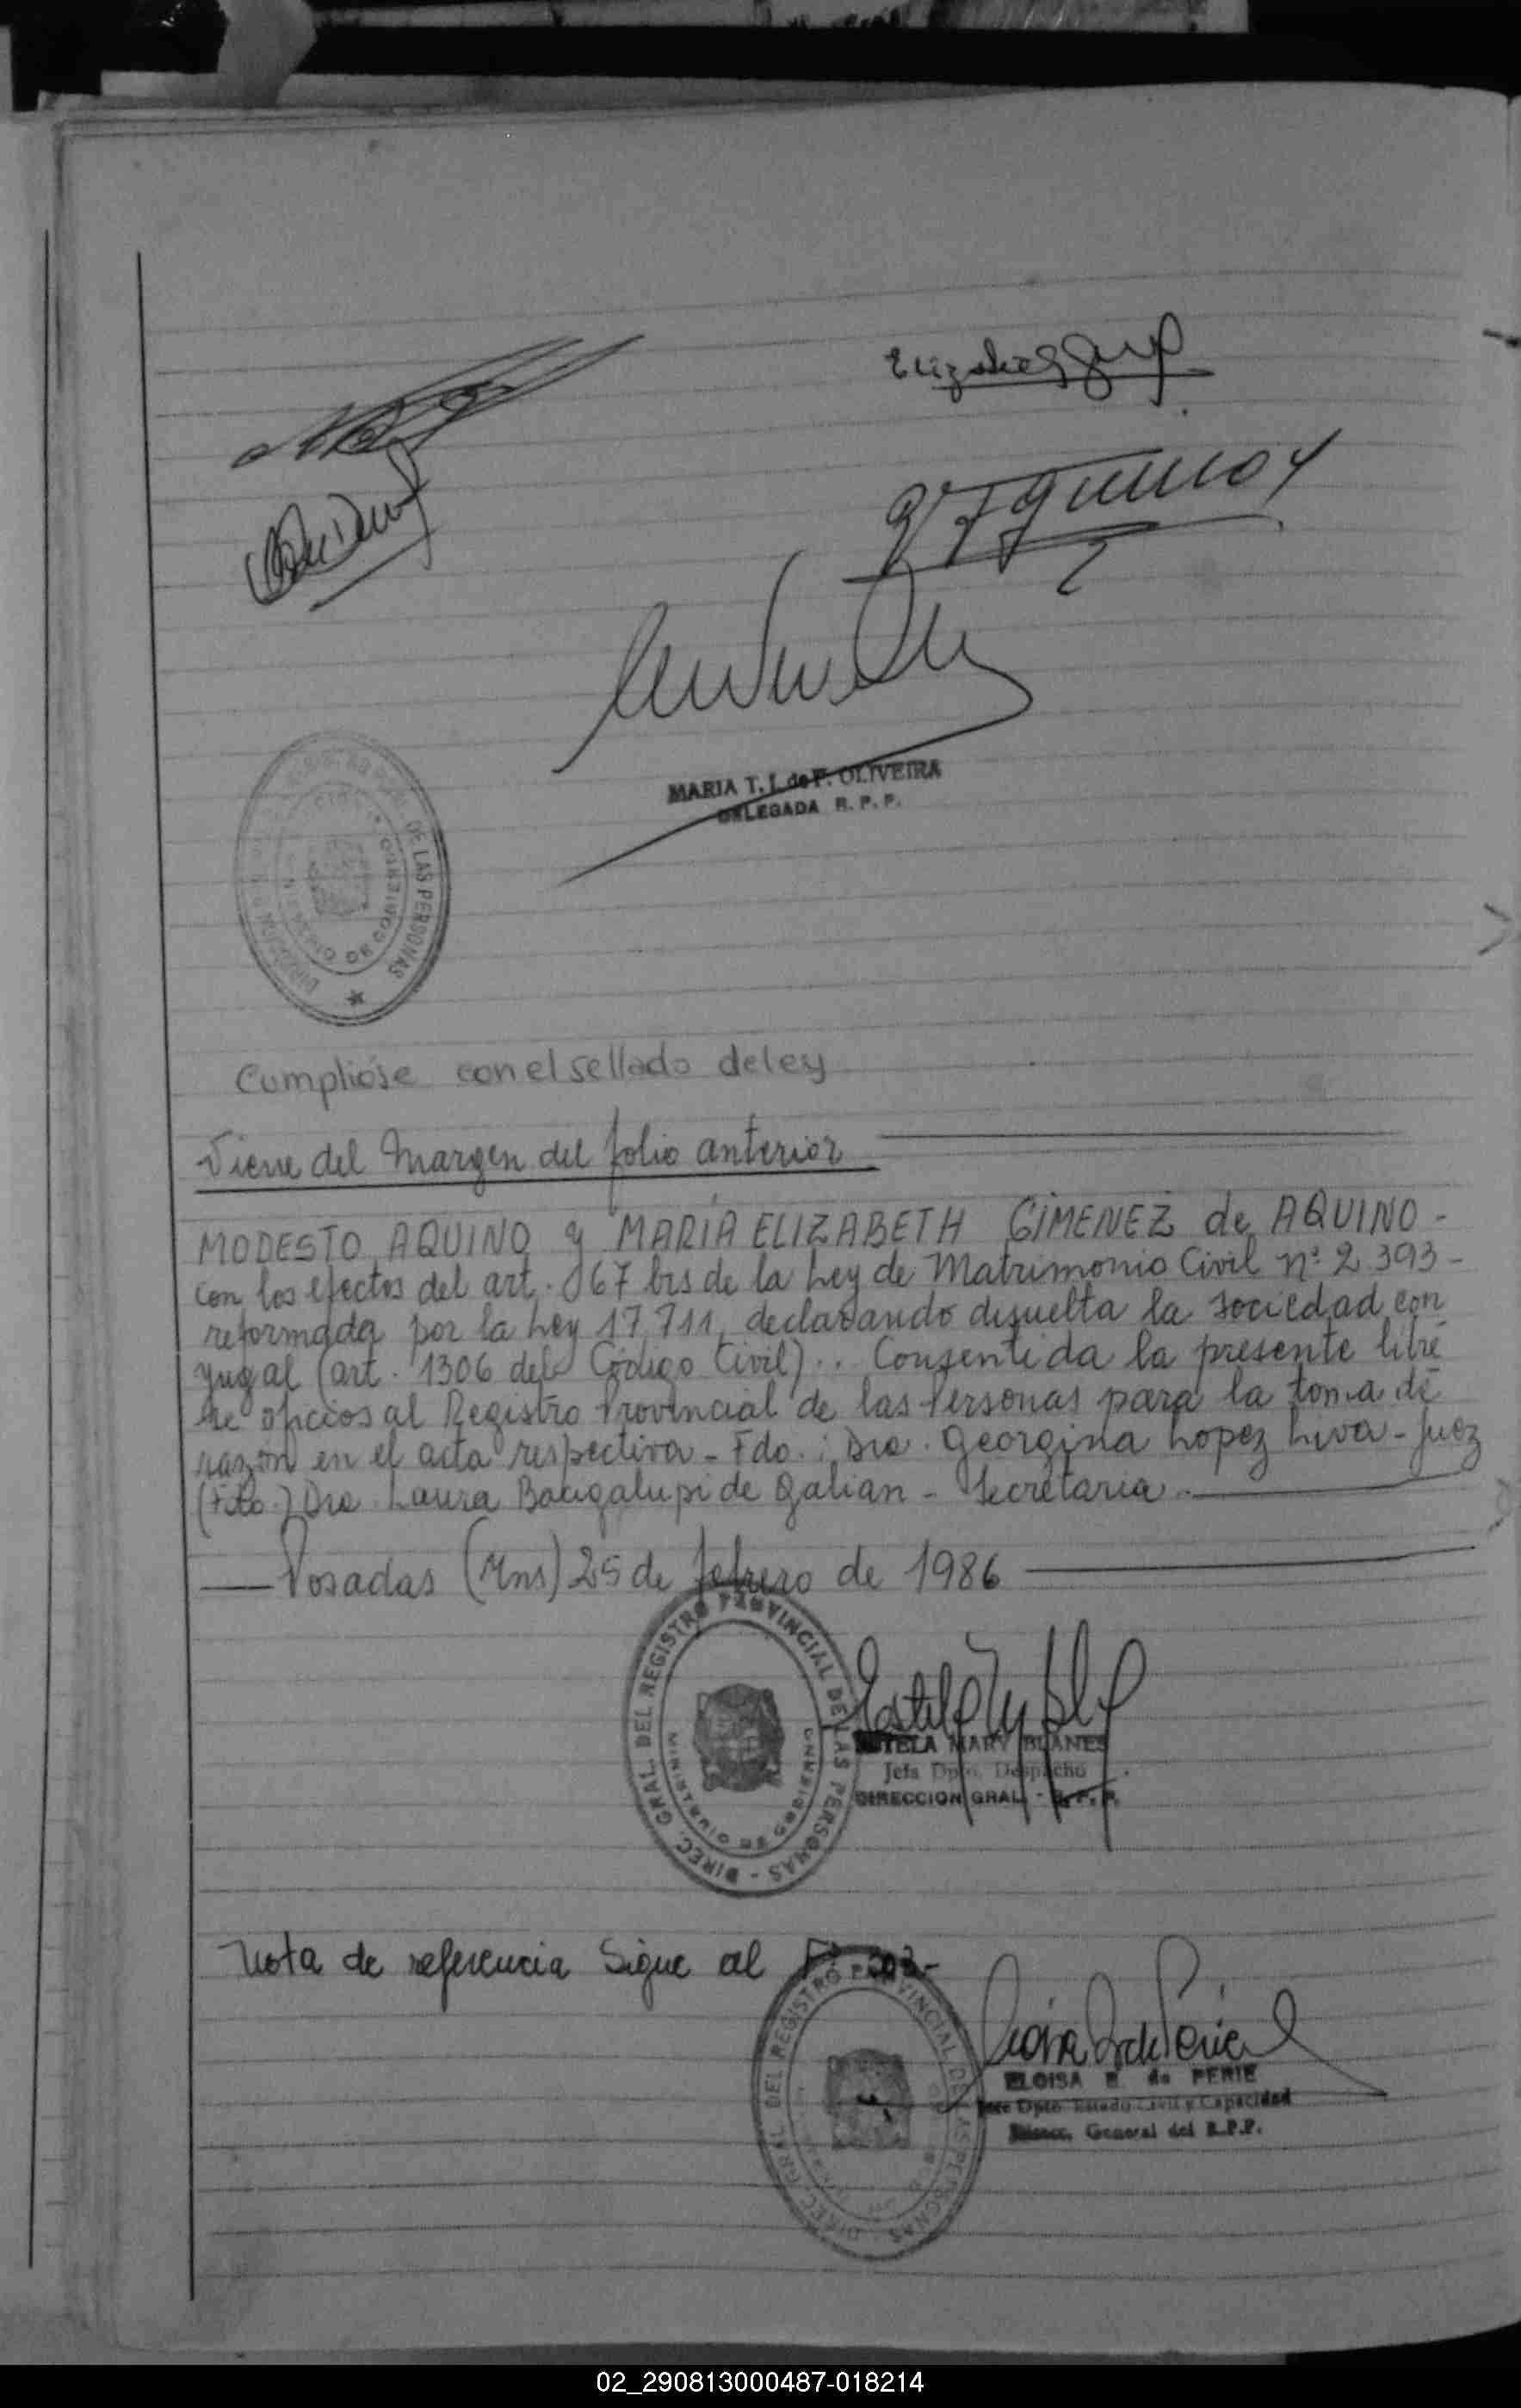 MARIA T. I. de F. OLIVEIRA
DELEGADA R. P. P.
DE LAS PERSONAS
DE GOBIERNO
Cumplióse con el sellado de ley
Viene del Margen del folio anterior
MODESTO AQUINO y MARIA ELIZABETH GIMENEZ de AQUINO -
con los efectos del art. 67 bis de la Ley de Matrimonio Civil nº 2.393 -
reformada por la Ley 17.711, declarando disuelta la sociedad con
yugal (art. 1306 del Código Civil)... Consentida la presente libre
se oficios al Registro Provincial de las Personas para la toma de
razón en el acta respectiva - Fdo.: Dra. Georgina Lopez Liva - Juez
(Fdo.) Dra. Laura Bacigalupi de Galian - Secretaria.
Posadas (Mns) 25 de febrero de 1986
DIREC. GRAL. DEL REGISTRO PROVINCIAL DE LAS PERSONAS -
MINISTERIO DE GOBIERNO
ESTELA MARY BLANES
Jefa Dpto. Despacho
DIRECCION GRAL. - R. P. P.
Nota de referencia Sigue al
DIREC. GRAL. DEL REGISTRO PROVINCIAL DE LAS PERSONAS
ELOISA de PERIE
Jefe Dpto. Estado Civil y Capacidad
Direcc. General del R.P.P.
02_290813000487-018214